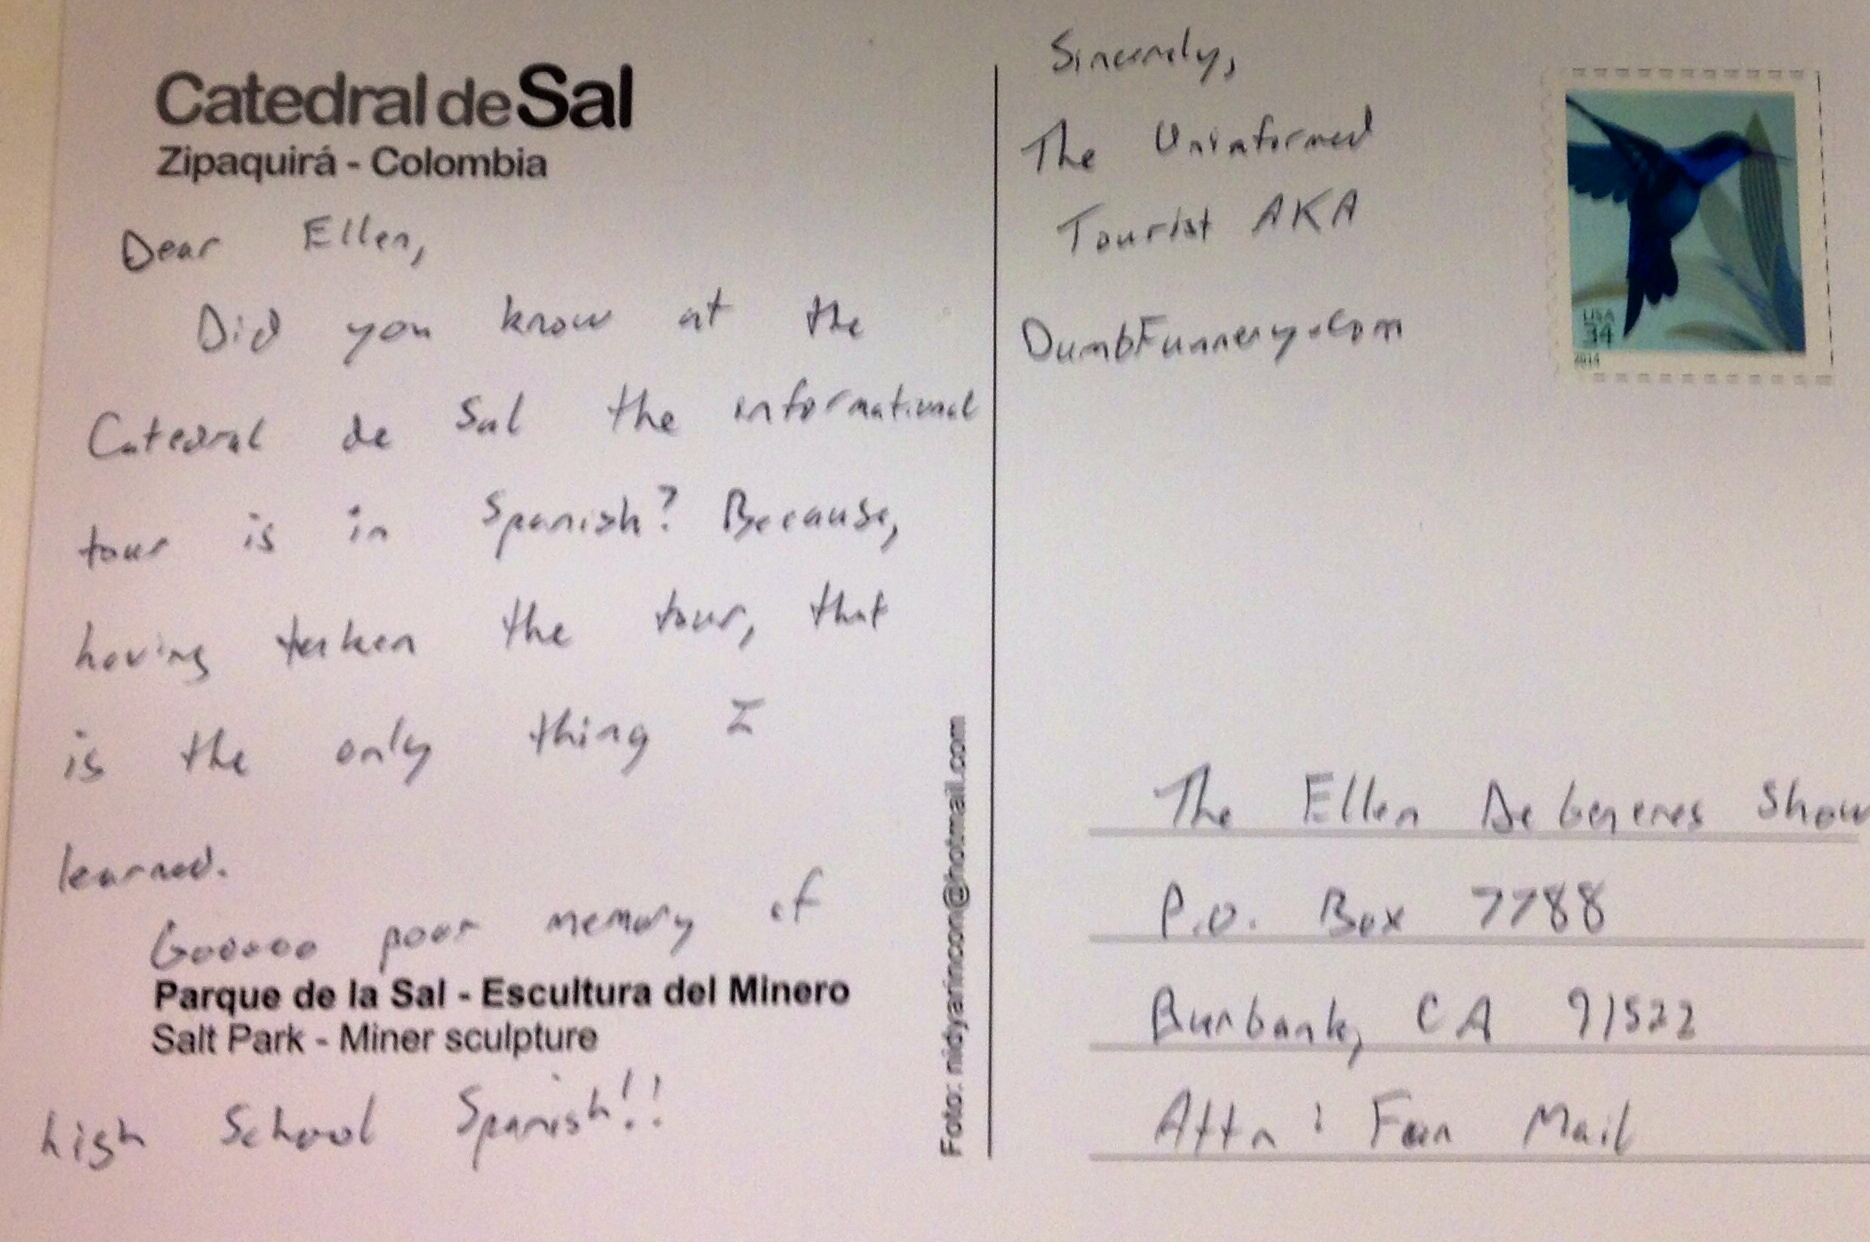 Catedral de Sal
Zipaquirá - Colombia
Dear Ellen,
Did you know at the
Catedral de Sal the informational
tour is in Spanish? Because,
having taken the tour, that
is the only thing I
learned.
Gooooo poor memory of
Parque de la Sal - Escultura del Minero
Salt Park - Miner sculpture
high School Spanish!!
Foto: nidyarincon@hotmail.com
Sincerely,
The Uninformed
Tourist AKA
DumbFunnery.com
USA
34
2014
The Ellen DeGeneres Show
P.O. Box 7788
Burbank, CA 91522
Attn: Fan Mail